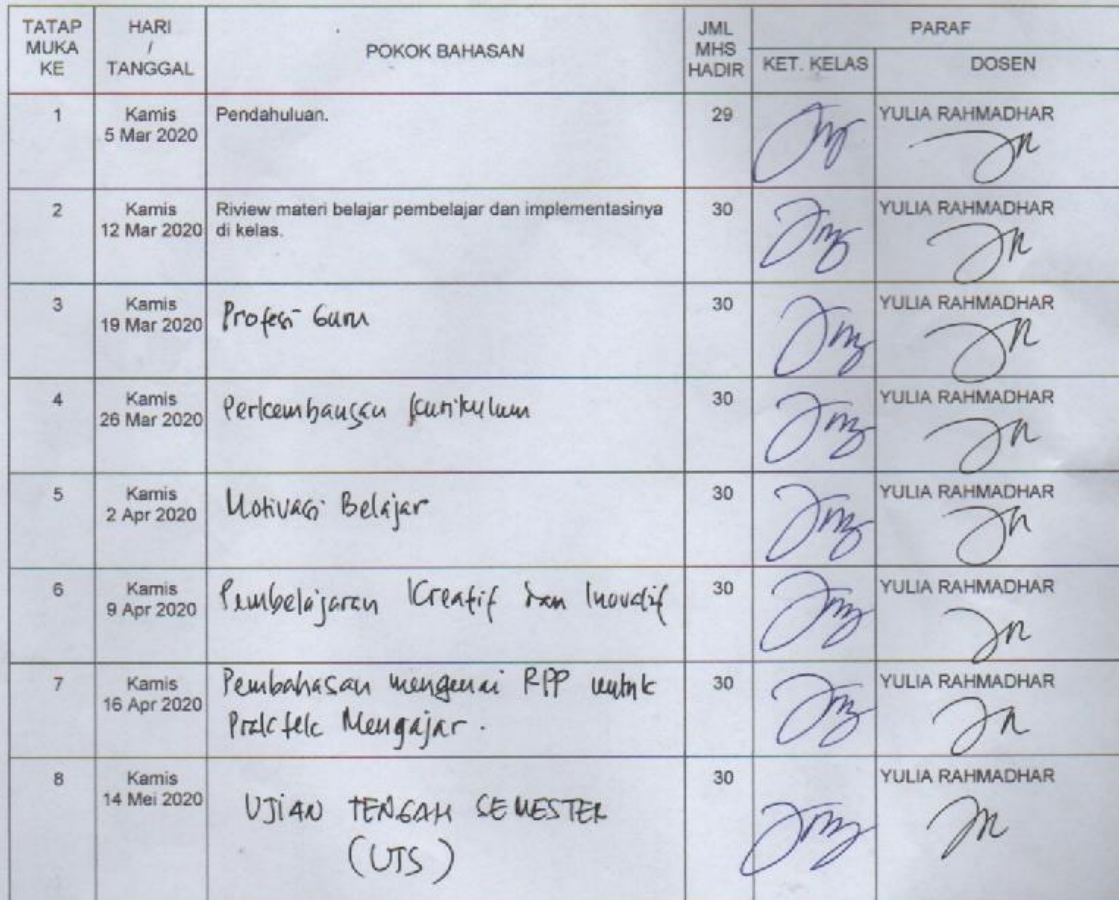 TATAP MUKA KE
HARI / TANGGAL
POKOK BAHASAN
JML MHS HADIR
PARAF
KET. KELAS
DOSEN
1
Kamis
5 Mar 2020
Pendahuluan.
29
YULIA RAHMADHAR
2
Kamis
12 Mar 2020
Riview materi belajar pembelajar dan implementasinya
di kelas.
30
YULIA RAHMADHAR
3
Kamis
19 Mar 2020
Profesi Guru
30
YULIA RAHMADHAR
4
Kamis
26 Mar 2020
Perkembangan kurikulum
30
YULIA RAHMADHAR
5
Kamis
2 Apr 2020
Motivasi Belajar
30
YULIA RAHMADHAR
6
Kamis
9 Apr 2020
Pembelajaran Kreatif dan Inovatif
30
YULIA RAHMADHAR
7
Kamis
16 Apr 2020
Pembahasan mengenai RPP untuk
Praktek Mengajar.
30
YULIA RAHMADHAR
8
Kamis
14 Mei 2020
UJIAN TENGAH SEMESTER
(UTS)
30
YULIA RAHMADHAR